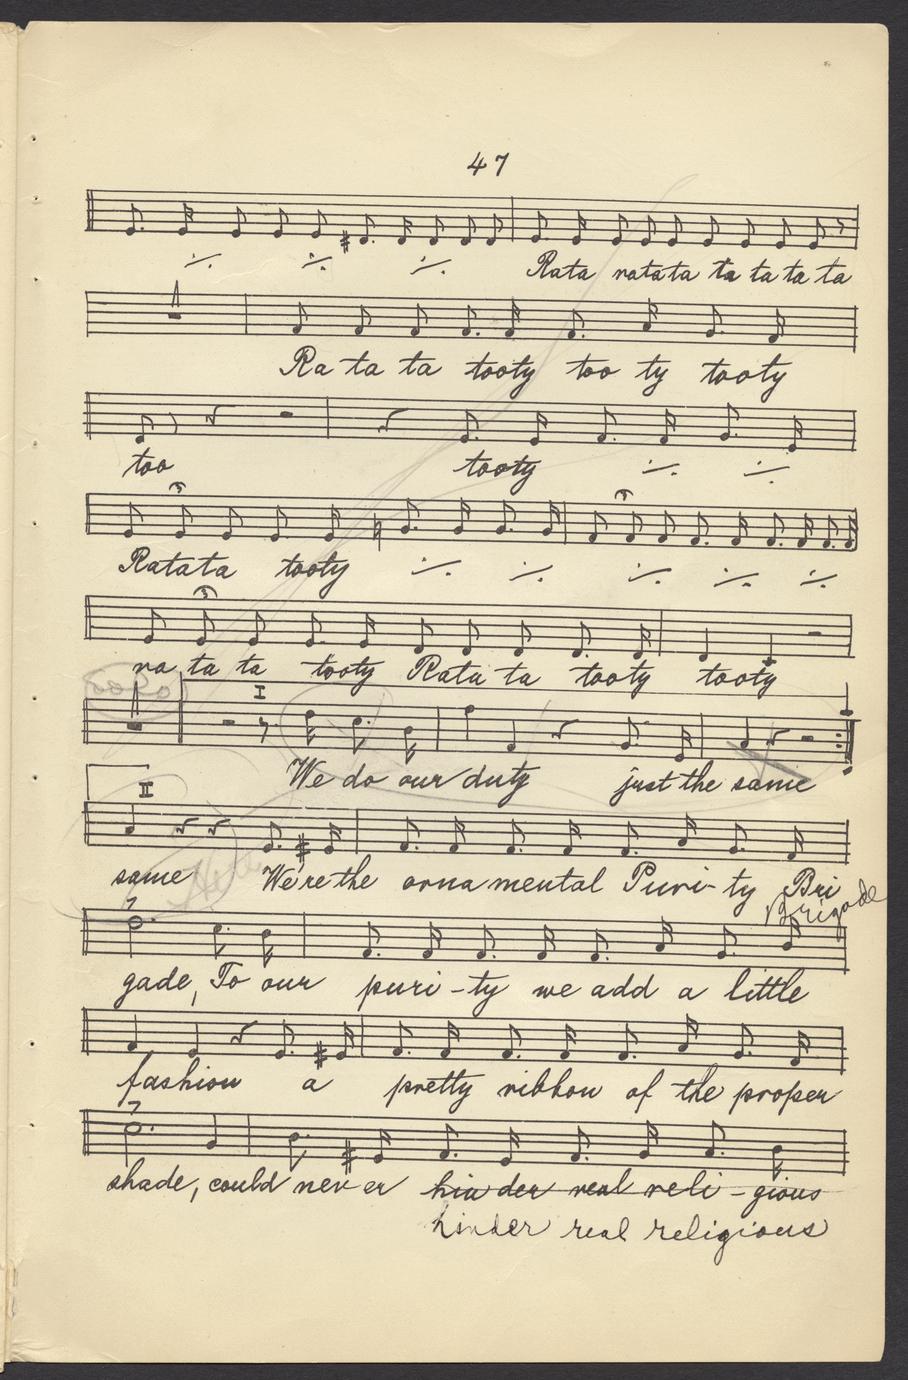 47
Rata ratata ta ta ta ta
Ra ta ta tooty too ty tooty
too tooty
3 3
Ratata tooty
3
ra ta ta tooty Rata ta tooty tooty
I
We do our duty just the same
II
same We're the ornamental Puri-ty Bri
Brigade
gade, To our puri-ty we add a little
fashion a pretty ribbon of the proper
shade, could never hinder real reli-gious
hinder real religious